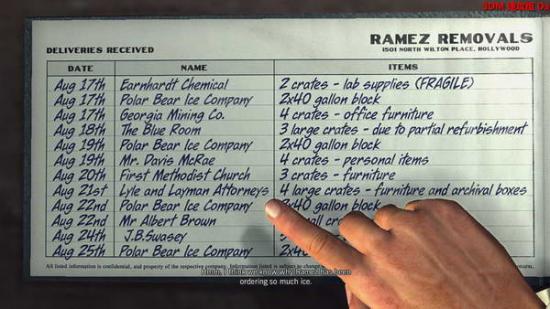 RAMEZ REMOVALS
1501 NORTH WILTON PLACE, HOLLYWOOD
DELIVERIES RECEIVED
DATE NAME ITEMS
Aug 17th Earnhardt Chemical 2 crates - lab supplies (FRAGILE)
Aug 17th Polar Bear Ice Company 2x40 gallon block
Aug 17th Georgia Mining Co. 4 crates - office furniture
Aug 18th The Blue Room 3 large crates - due to partial refurbishment
Aug 19th Polar Bear Ice Company 2x40 gallon block
Aug 19th Mr. Davis McRae 4 crates - personal items
Aug 20th First Methodist Church 3 crates - furniture
Aug 21st Lyle and Layman Attorneys 4 large crates - furniture and archival boxes
Aug 22nd Polar Bear Ice Company 2x40 gallon block
Aug 22nd Mr Albert Brown crates
Aug 24th J.B.Swasey
Aug 25th Polar Bear Ice Company 2x40
All listed information is confidential, and property of the respective company. Information listed is subject to
I think we know why has been
ordering so much ice.